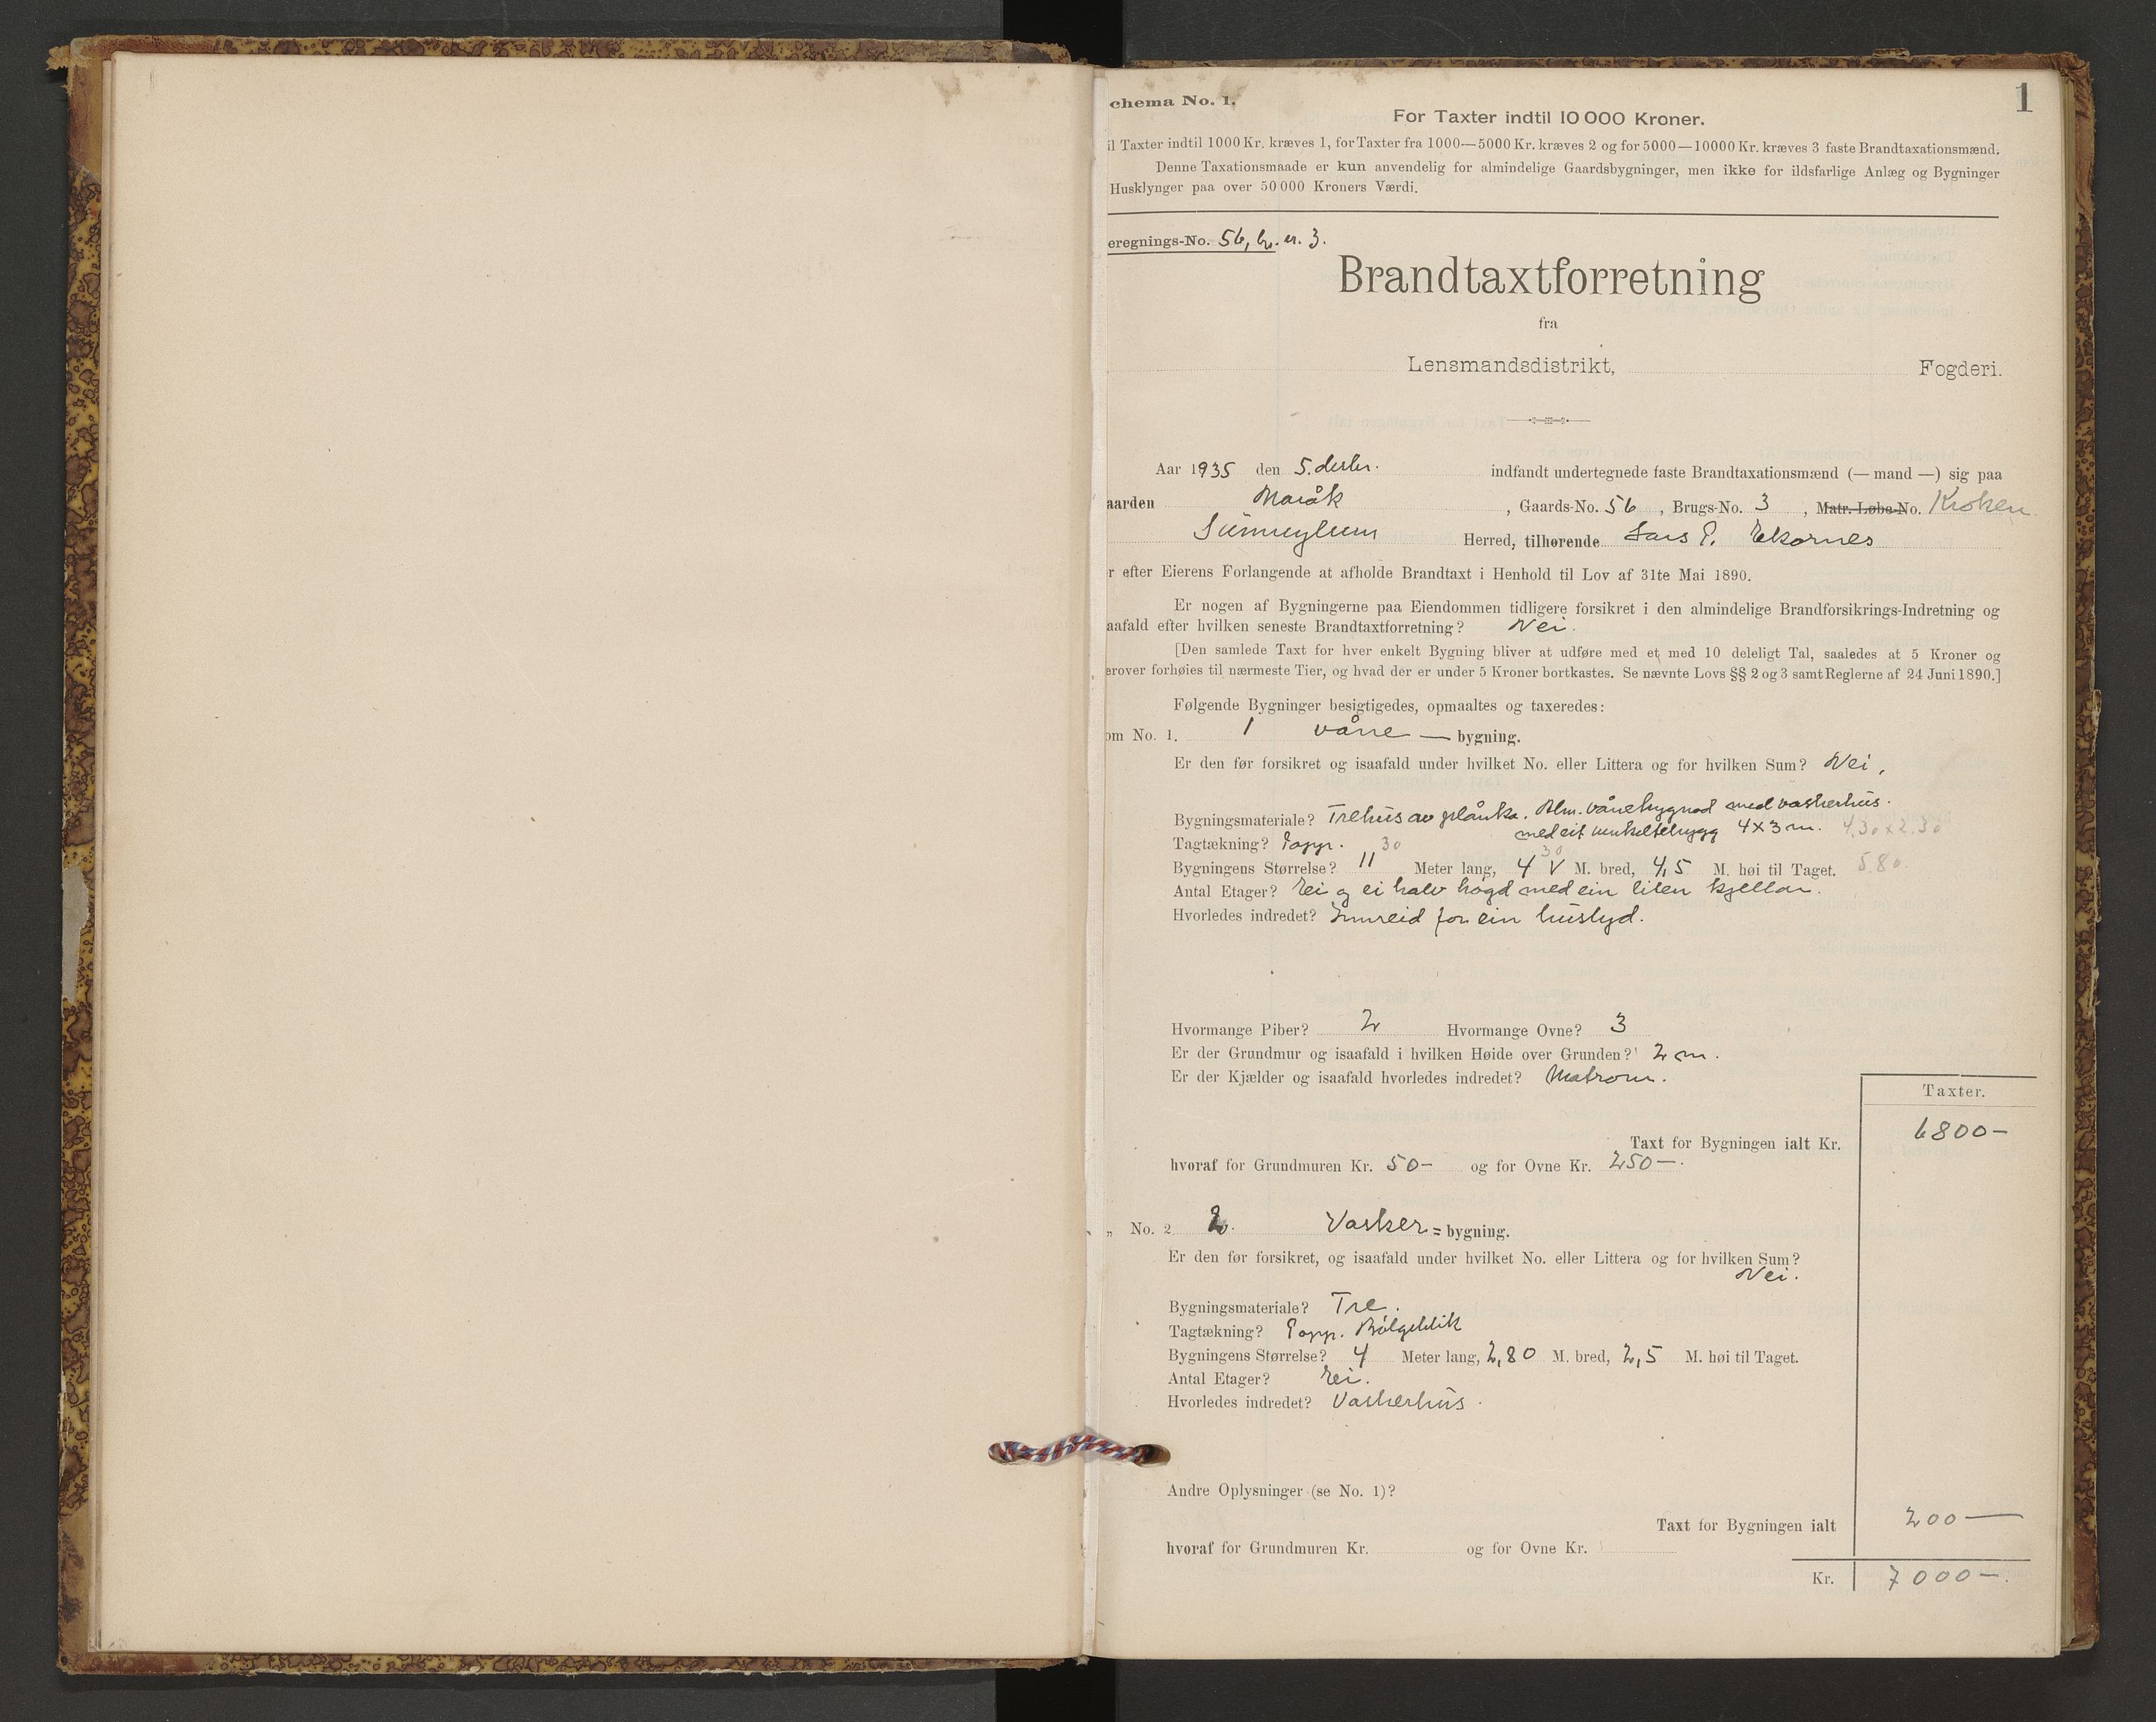 1
chema No. 1.
For Taxter indtil 10 000 Kroner.
il Taxter indtil 1000 Kr. kræves 1, for Taxter fra 1000—5000 Kr. kræves 2 og for 5000—10000 Kr. kræves 3 faste Brandtaxationsmænd.
Denne Taxationsmaade er kun anvendelig for almindelige Gaardsbygninger, men ikke for ildsfarlige Anlæg og Bygninger
Husklynger paa over 50 000 Kroners Værdi.
eregnings-No. 56, br. nr. 3.
Brandtaxtforretning
fra
Lensmandsdistrikt, Fogderi.
Aar 1935 den 5. desbr. indfandt undertegnede faste Brandtaxationsmænd (— mand —) sig paa
aarden Maråk, Gaards-No. 56, Brugs-No. 3, Matr.-Løbe-No. Kroken
Sunnylven Herred, tilhørende Lars P. Ekornes
r efter Eierens Forlangende at afholde Brandtaxt i Henhold til Lov af 31te Mai 1890.
Er nogen af Bygningerne paa Eiendommen tidligere forsikret i den almindelige Brandforsikrings-Indretning og
aafald efter hvilken seneste Brandtaxtforretning? Nei.
[Den samlede Taxt for hver enkelt Bygning bliver at udføre med et med 10 deleligt Tal, saaledes at 5 Kroner og
erover forhøies til nærmeste Tier, og hvad der er under 5 Kroner bortkastes. Se nævnte Lovs §§ 2 og 3 samt Reglerne af 24 Juni 1890.]
Følgende Bygninger besigtigedes, opmaaltes og taxeredes:
om No. 1. 1 våne — bygning.
Er den før forsikret og isaafald under hvilket No. eller Littera og for hvilken Sum? Nei.
Bygningsmateriale? Trehus av plånke. Alm. vånebygnad med vaskerhus.
med eit vinkeltebygg 4 x 3 m. 4.30 x 2.30
Tagtækning? Papp. 30
Bygningens Størrelse? 11 Meter lang, 4 30 V M. bred, 4,5 M. høi til Taget. 5.80
Antal Etager? Ei og ei halv høgd med ein liten kjellar.
Hvorledes indredet? Innreid for ein huslyd.
Hvormange Piber? 2 Hvormange Ovne? 3
Er der Grundmur og isaafald i hvilken Høide over Grunden? 2 m.
Er der Kjælder og isaafald hvorledes indredet? Matrom.
Taxter.
Taxt for Bygningen ialt Kr. 6800—
hvoraf for Grundmuren Kr. 50— og for Ovne Kr. 250—.
„ No. 2 2. Vasker = bygning.
Er den før forsikret, og isaafald under hvilket No. eller Littera og for hvilken Sum?
Nei.
Bygningsmateriale? Tre.
Tagtækning? Papp. Bølgeblik
Bygningens Størrelse? 4 Meter lang, 2,80 M. bred, 2,5 M. høi til Taget.
Antal Etager? Ei.
Hvorledes indredet? Vaskerhus.
Andre Oplysninger (se No. 1)?
Taxt for Bygningen ialt 200—
hvoraf for Grundmuren Kr. og for Ovne Kr.
Kr. 7000—.